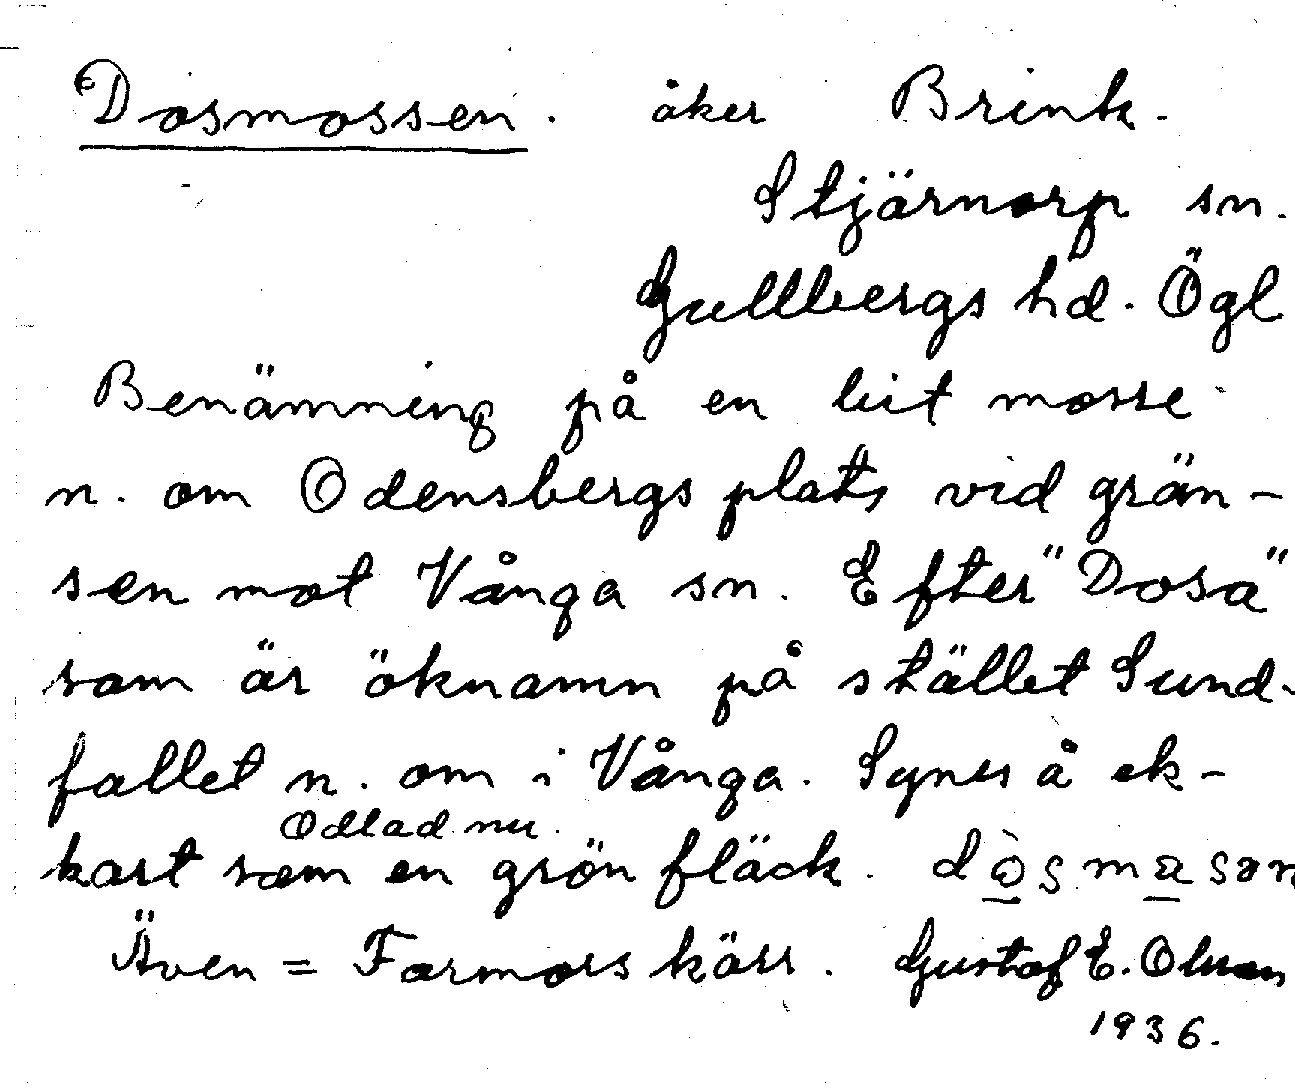 Dosmossen. åker Brink.
Stjärnorp sn.
Gullbergs hd. Ögl
Benämning på en bit mosse
n. om Odensbergs plats vid grän-
sen mot Vånga sn. Efter "Dosa"
som är öknamn på stället Sund-
fallet n. om i Vånga. Synes å ek-
Odlad nu.
kart som en grön fläck.
Även = Farmors kärr. Gustaf E. Olsson
1936.